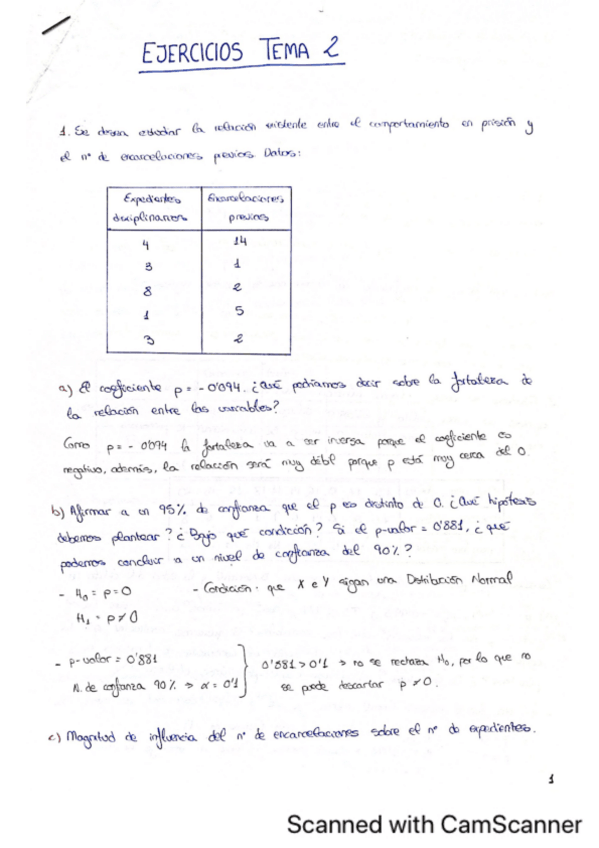 EJERCICIOS TEMA 2
1. Se desea estudiar la relación existente entre el comportamiento en prisión y
el nº de encarcelaciones previas Datos:
Expedientes Encarcelaciones
disciplinarios previas
4 14
3 1
8 2
1 5
3 2
a) El coeficiente ρ = - 0'094. ¿Qué podríamos decir sobre la fortaleza de
la relación entre las variables?
Como ρ = - 0'094 la fortaleza va a ser inversa porque el coeficiente es
negativo, además, la relación será muy débil porque ρ está muy cerca del 0.
b) Afirmar a un 95% de confianza que el ρ es distinto de 0. ¿Qué hipótesis
debemos plantear? ¿Bajo qué condición? Si el p-valor = 0'881, ¿qué
podemos concluir a un nivel de confianza del 90%?
- H₀ = ρ = 0 - Condición: que X e Y sigan una Distribución Normal
H₁ = ρ ≠ 0
- p-valor = 0'881
N. de confianza 90% ⇒ α = 0'1
0'881 > 0'1 ⇒ no se rechaza H₀, por lo que no
se puede descartar ρ ≠ 0.
c) Magnitud de influencia del nº de encarcelaciones sobre el nº de expedientes.
1
Scanned with CamScanner